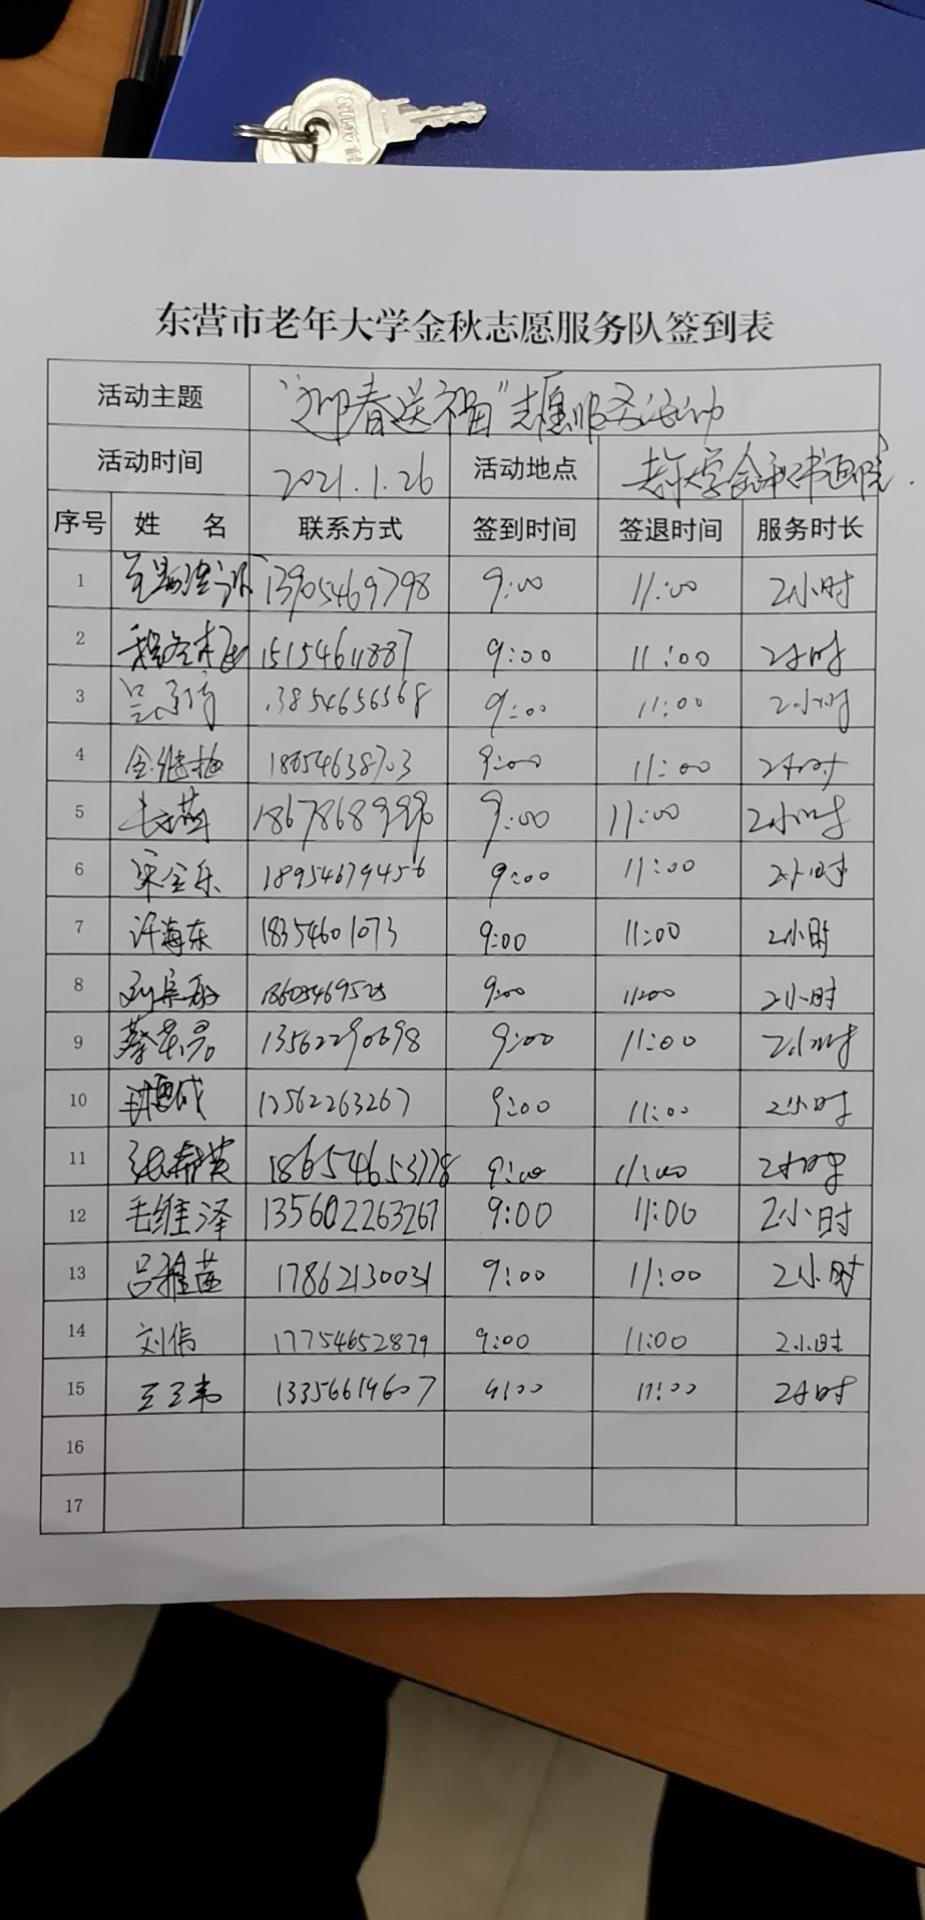 东营市老年大学金秋志愿服务队签到表
活动主题 "迎春送福"志愿服务活动
活动时间 2021.1.26 活动地点 老年大学金秋书画院
序号 姓 名 联系方式 签到时间 签退时间 服务时长
1 13905469798 9:00 11:00 2小时
2 15154611887 9:00 11:00 2小时
3 13854656568 9:00 11:00 2小时
4 18654638703 9:00 11:00 2小时
5 9:00 11:00 2小时
6 宋金乐 18954679456 9:00 11:00 2小时
7 许海东 18354601073 9:00 11:00 2小时
8 9:00 11:00 2小时
9 13562290698 9:00 11:00 2小时
10 9:00 11:00 2小时
11 9:00 11:00 2小时
12 毛维泽 135602263267 9:00 11:00 2小时
13 吕雅茁 17862130031 9:00 11:00 2小时
14 刘伟 17754652879 9:00 11:00 2小时
15 13356614607 9:00 11:00 2小时
16
17